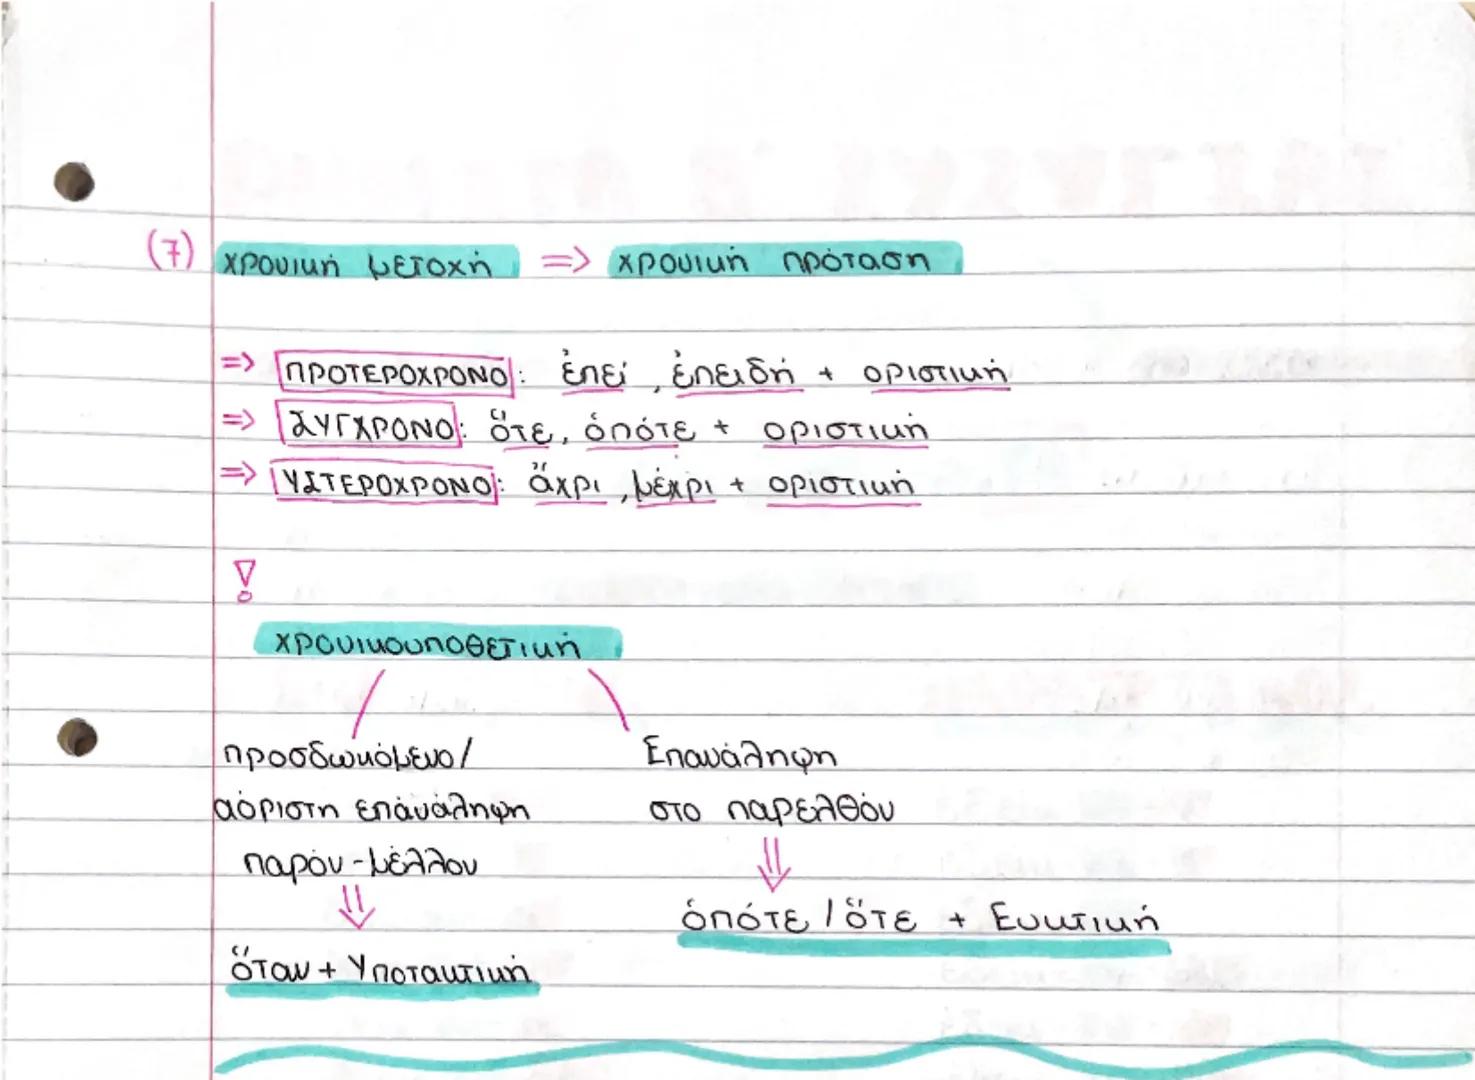 (7) χρονική μετοχή => χρονική πρόταση
=> ΠΡΟΤΕΡΟΧΡΟΝΟ: ἐπεί, ἐπειδή + οριστική
=> ΣΥΓΧΡΟΝΟ: ὅτε, ὁπότε + οριστική
=> ΥΣΤΕΡΟΧΡΟΝΟ: ἄχρι, μέχρι + οριστική
!
χρονικουποθετική
προσδωκόμενο/
αόριστη επάνάληψη
παρόν-μέλλον
⇓
ὅταν + Υποτακτική
Επανάληψη
στο παρελθόν
⇓
ὁπότε / ὅτε + Ευκτική